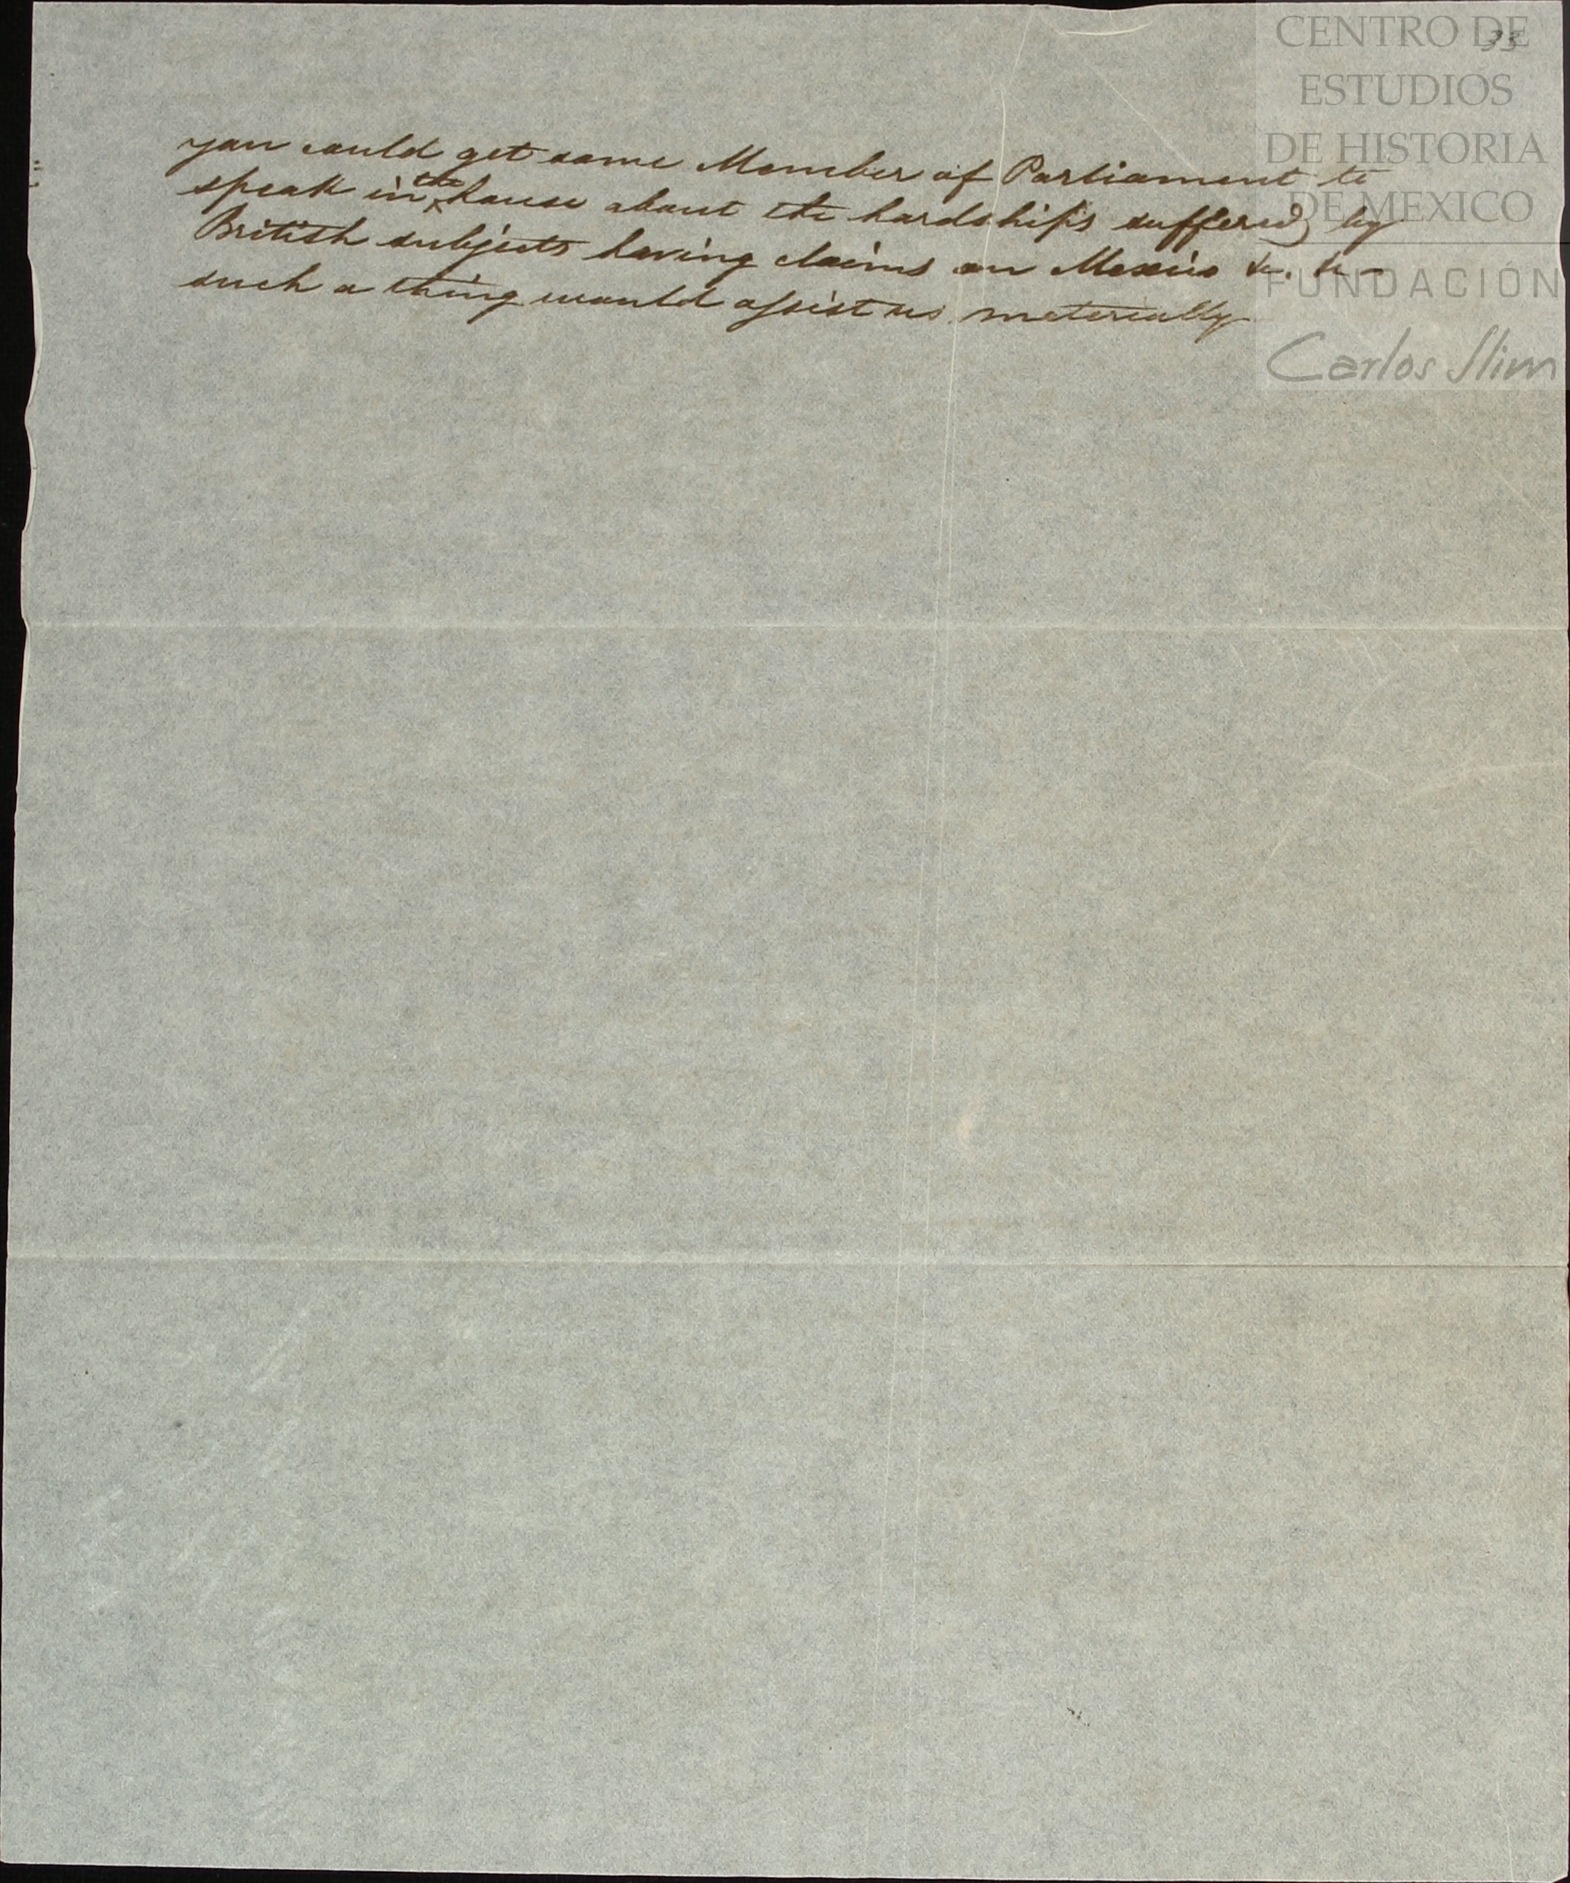 CENTRO DE
ESTUDIOS
DE HISTORIA
DE MEXICO
FUNDACIÓN
Carlos Slim
33
you could get some Member of Parliament to
speak in the house about the hardships suffered by
British subjects having claims on Mexico &c. &c –
such a thing would assist us materially